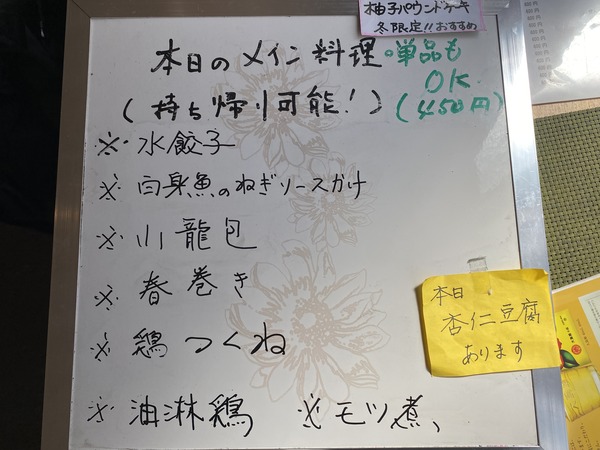 柚子パウンドケーキ
冬限定!!おすすめ
本日のメイン料理 。単品も
OK
(持ち帰り可能!) (450円)
※ 水餃子
※ 白身魚のねぎソースかけ
※ 小龍包
※ 春巻き
※ 鶏つくね
※ 油淋鶏 ※ モツ煮、
本日
杏仁豆腐
あります